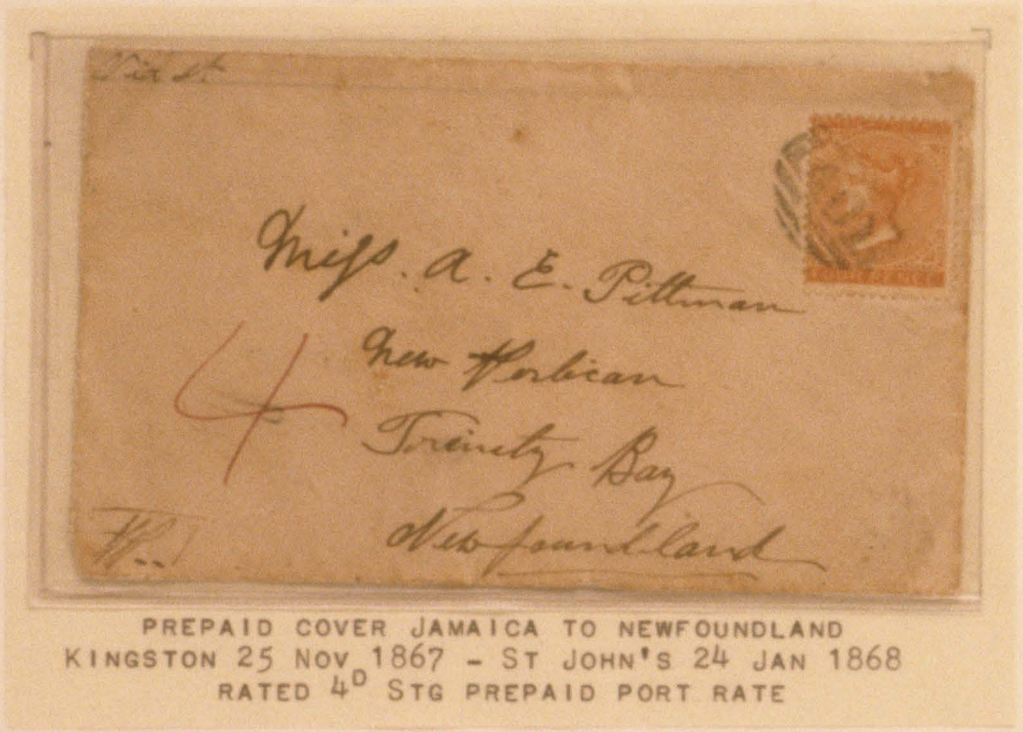 Via St
Miss. A. E. Pittman
New Perlican
Trinity Bay
Newfoundland
4
PREPAID COVER JAMAICA TO NEWFOUNDLAND
KINGSTON 25 NOV 1867 - ST JOHN'S 24 JAN 1868
RATED 4D STG PREPAID PORT RATE